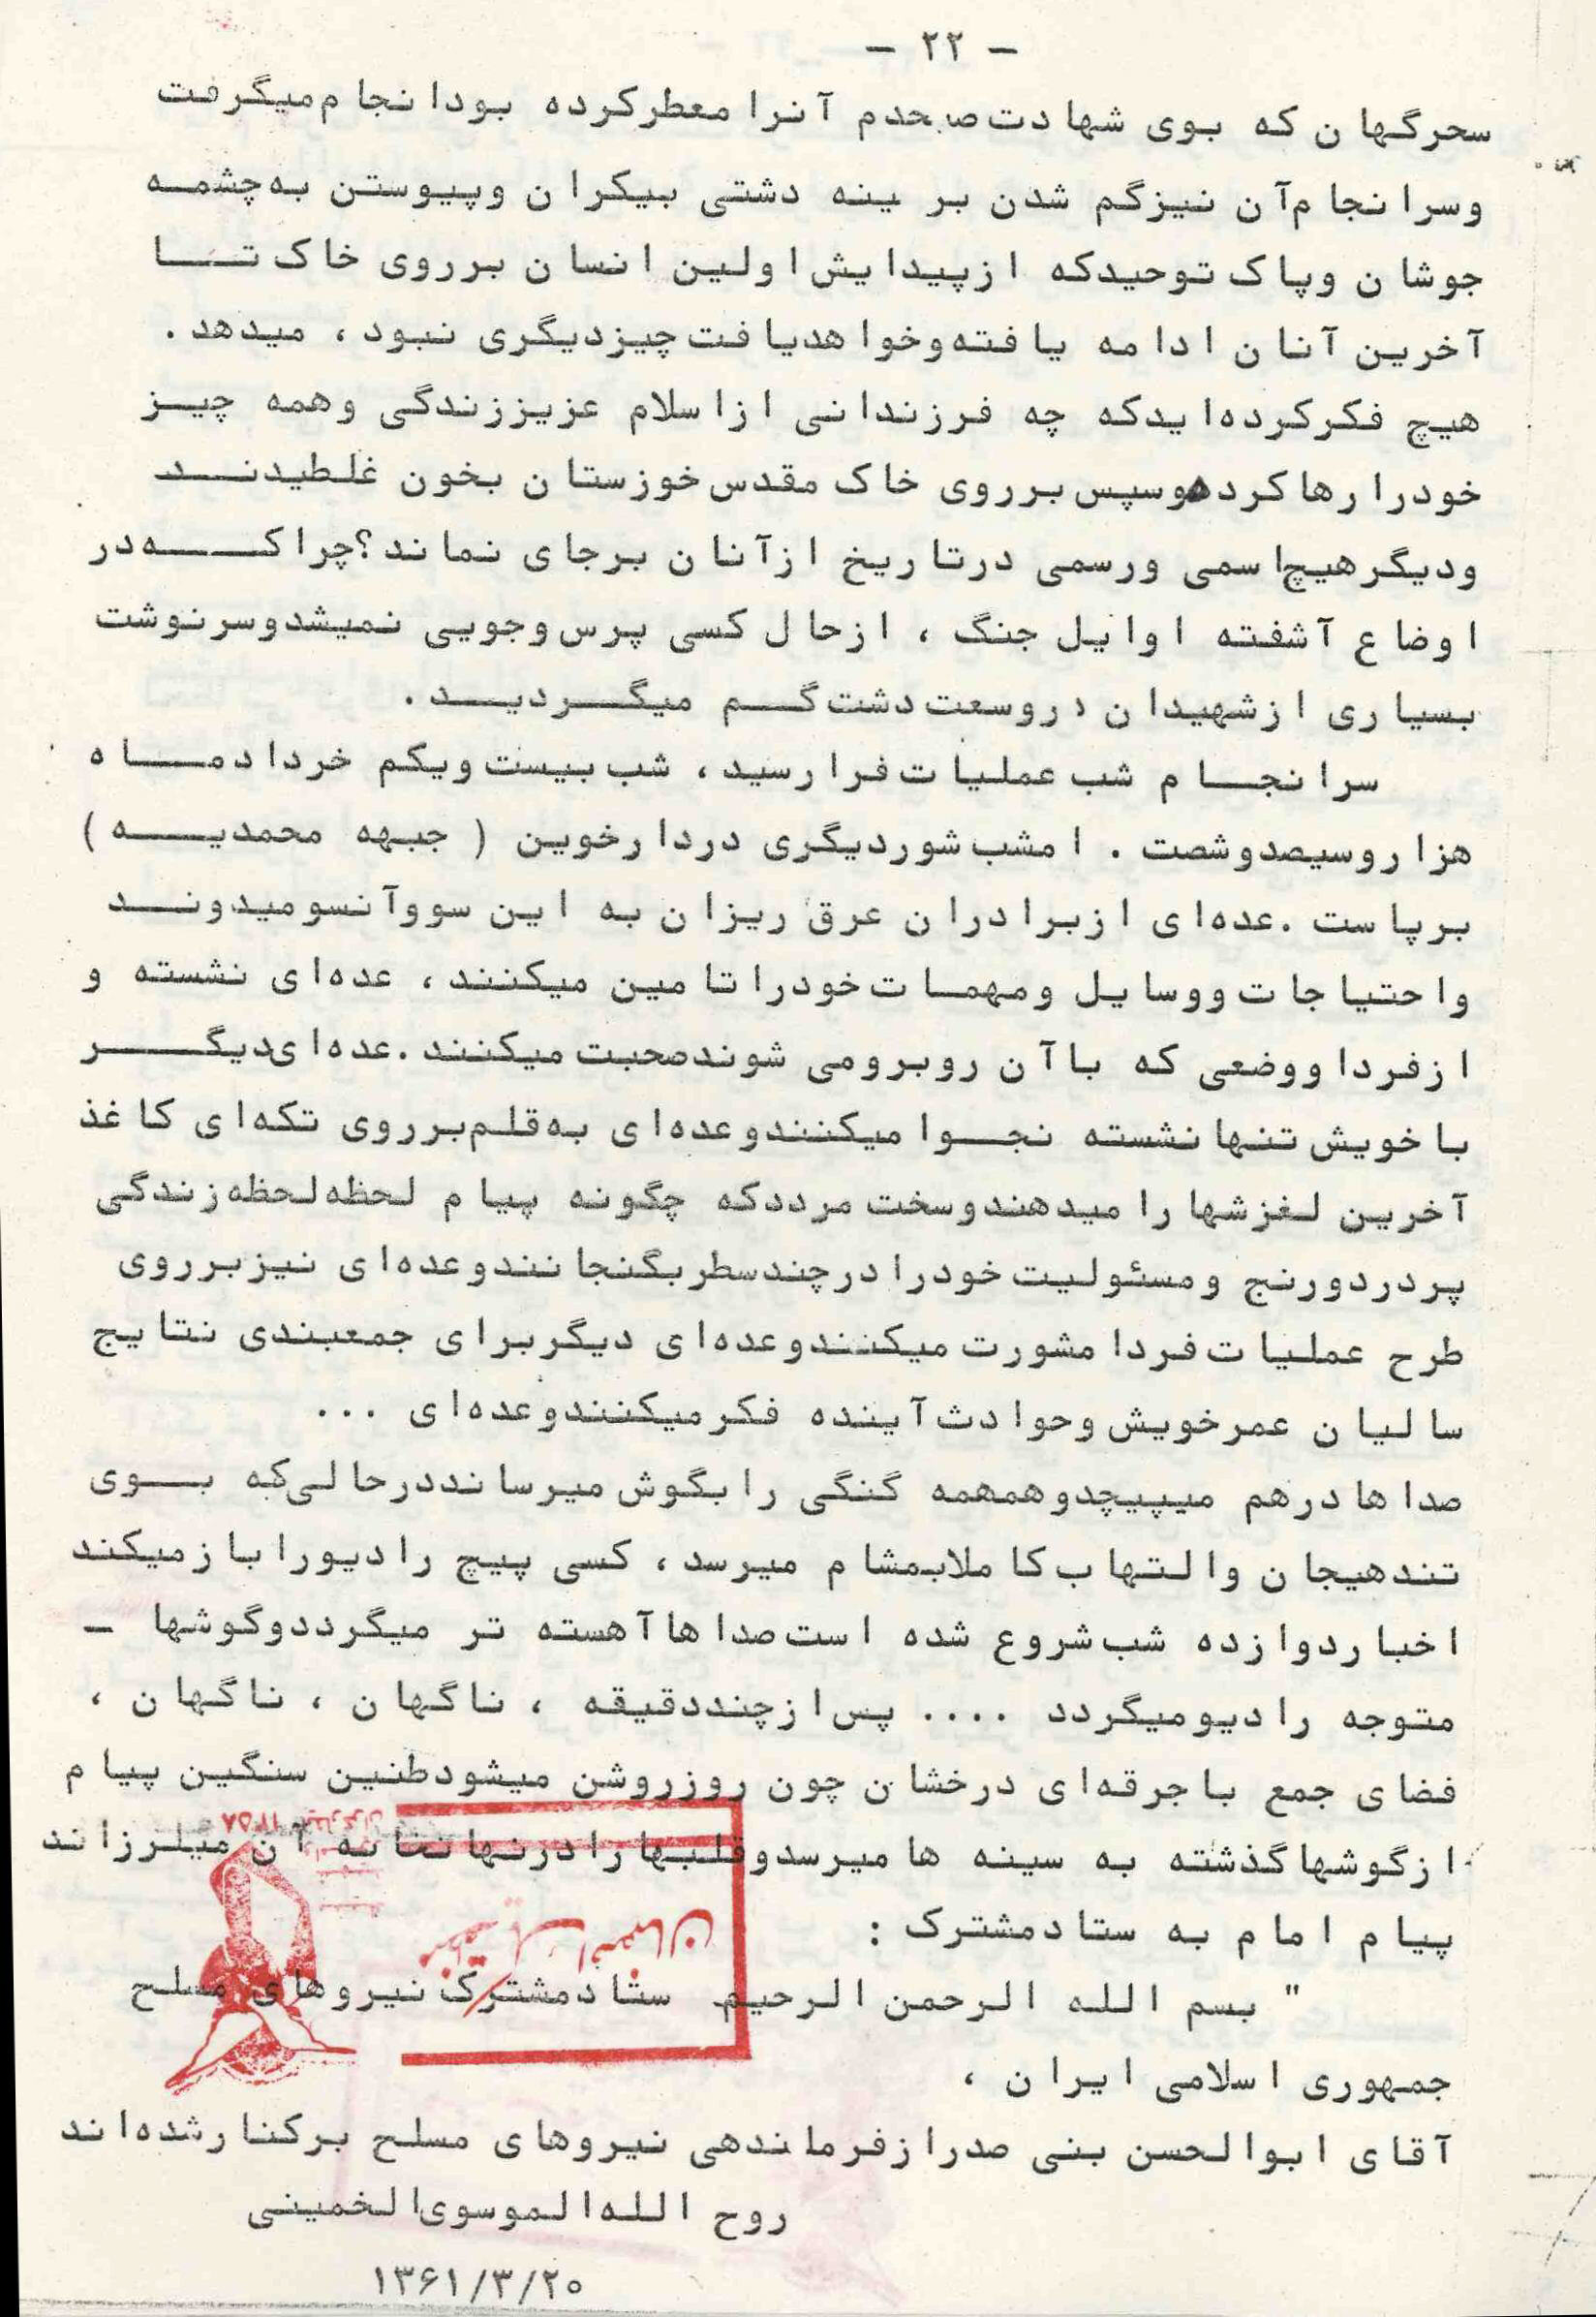 - ۲۲ -
سحرگهان که بوی شهادت صبحدم آنرا معطر کرده بود انجام میگرفت
وسرانجام آن نیز گم شدن بر ینه دشتی بیکران وپیوستن به چشمه
جوشان وپاک توحید که از پیدایش اولین انسان برروی خاک تا
آخرین آنان ادامه یافته وخواهد یافت چیز دیگری نبود، میدهد.
هیچ فکر کرده‌اید که چه فرزندانی از اسلام عزیز زندگی وهمه چیز
خودرا رها کرده وسپس برروی خاک مقدس خوزستان بخون غلطیدند
ودیگر هیچ اسمی ورسمی درتاریخ ازآنان برجای نماند؟چرا که در
اوضاع آشفته اوایل جنگ ، ازحال کسی پرس وجویی نمیشد وسرنوشت
بسیاری ازشهیدان دروسعت دشت گم میگردید.
سرانجام شب عملیات فرا رسید، شب بیست ویکم خرداد ماه
هزاروسیصدوشصت . امشب شوردیگری دردارخوین ( جبهه محمدیه )
برپاست .عده‌ای ازبرادران عرق ریزان به این سو وآنسو میدوند
واحتیاجات ووسایل ومهمات خودرا تامین میکنند، عده‌ای نشسته و
ازفردا ووضعی که با آن روبرو می شوند صحبت میکنند.عده‌ای دیگر
با خویش تنها نشسته نجوا میکنند وعده‌ای به قلم برروی تکه‌ای کاغذ
آخرین لغزشها را میدهند وسخت مردد که چگونه پیام لحظه لحظه زندگی
پردرد ورنج ومسئولیت خودرا درچند سطر بگنجانند وعده‌ای نیز برروی
طرح عملیات فردا مشورت میکنند وعده‌ای دیگر برای جمعبندی نتایج
سالیان عمر خویش وحوادث آینده فکر میکنند وعده‌ای ...
صداها درهم میپیچد وهمهمه گنگی را بگوش میرساند درحالی‌که بوی
تند هیجان والتهاب کاملا بمشام میرسد، کسی پیچ رادیو را باز میکند
اخبار دوازده شب شروع شده است صداها آهسته تر میگردد وگوشها -
متوجه رادیو میگردد .... پس از چند دقیقه ، ناگهان ، ناگهان ،
فضای جمع با جرقه‌ای درخشان چون روز روشن میشود طنین سنگین پیام
از گوشها گذشته به سینه ها میرسد وقلبها را درنهانخانه آن میلرزاند
پیام امام به ستاد مشترک :
" بسم الله الرحمن الرحیم ستاد مشترک نیروهای مسلح
جمهوری اسلامی ایران ،
آقای ابوالحسن بنی صدر از فرماندهی نیروهای مسلح برکنار شده‌اند
روح الله الموسوی الخمینی
۱۳۶۱/۳/۲۰
۱۳۵۸
اصفهان